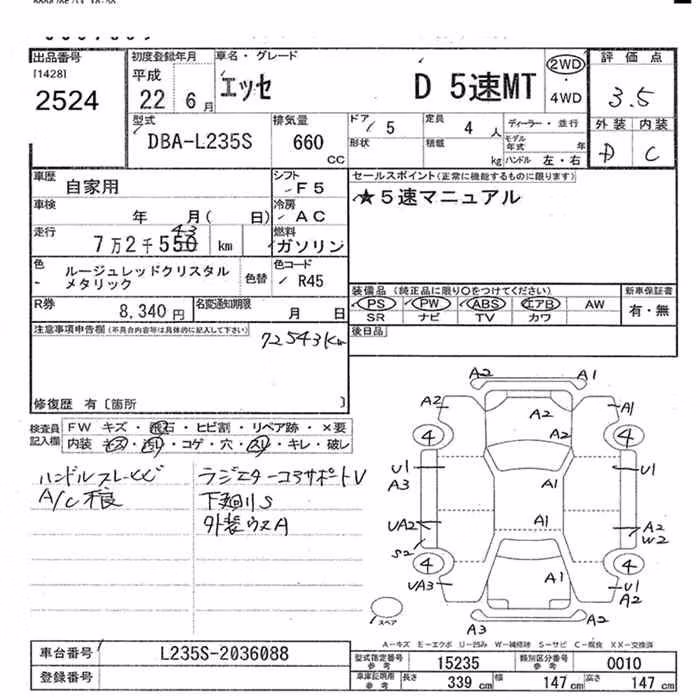 出品番号
[1428]
2524
初度登録年月
平成
22 6月
車名・グレード
エッセ D 5速MT
2WD
・
4WD
評価点
3.5
外装 内装
D C
型式
DBA-L235S
排気量
660
CC
ドア
5
形状
定員
4 人
積載
kg
ディーラー・並行
モデル
年式 年
ハンドル 左・右
車歴
自家用
シフト
F5
セールスポイント(正常に機能するものに限ります)
★5速マニュアル
車検
年 月( 日)
冷房
AC
走行
43
7万2千550 km
燃料
ガソリン
色
ルージュレッドクリスタル
メタリック
色替
色コード
R45
装備品(純正品に限り○をつけてください)
PS PW ABS エアB AW
SR ナビ TV カワ
新車保証書
有・無
R券
8,340円
名変通知期限
月 日
後日品
注意事項申告欄(不具合内容等は具体的に記入して下さい)
72543Km
修復歴 有〔箇所 〕
検査員
記入欄
FW キズ・飛石・ヒビ割・リペア跡・×要
内装 キズ・汚れ・コゲ・穴・スレ・キレ・破レ
ハンドルスレ
A/C不良
ラジエターコアサポートV
下廻りS
外装ウスA
A2 A1
A2
A2 A1
A2
4 4
U1 U1
A3
A1
A1
UA2
A2
W2
S2
4 4
UA3
A1
U1
A2
A3 A2
スペア
A-キズ E-エクボ U-凹み W-補修跡 S-サビ C-腐食 XX-交換済
車台番号
L235S-2036088
登録番号
型式指定番号
参考
15235
類別区分番号
参考
0010
車庫証明用
参考
長さ 339 cm
幅 147 cm
高さ 147 cm